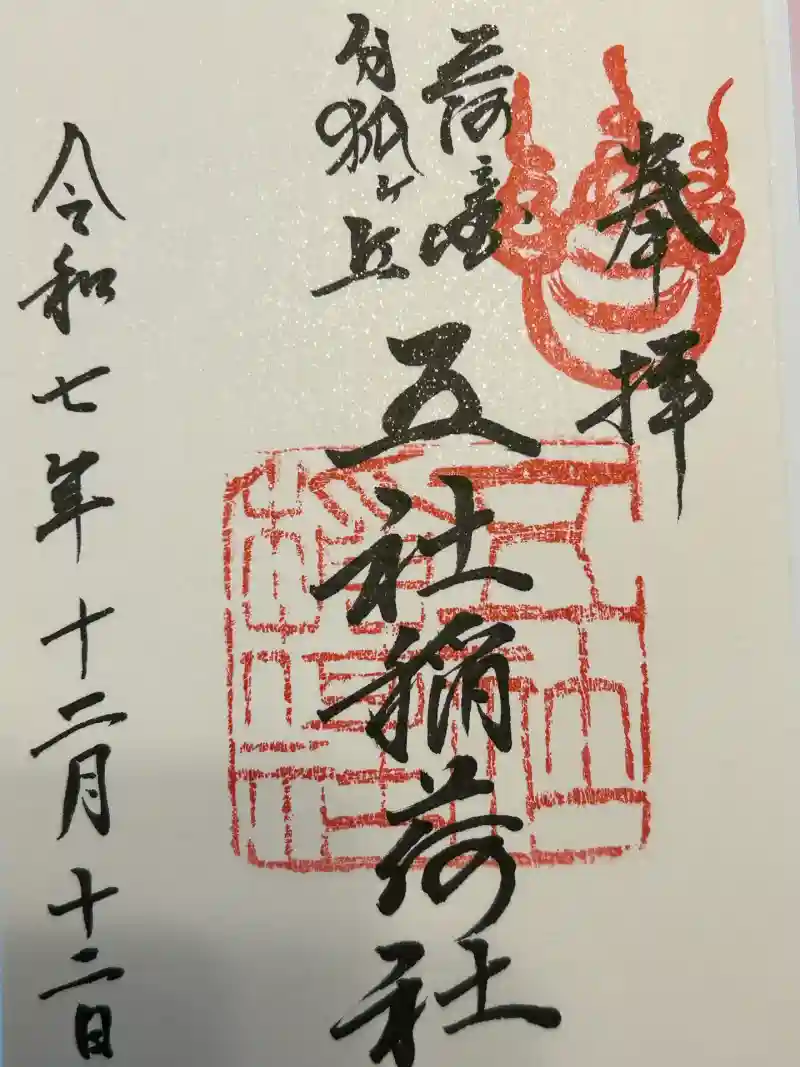 奉拝
荷
狐ヶ丘
五社稲荷社
令和七年十二月十二日